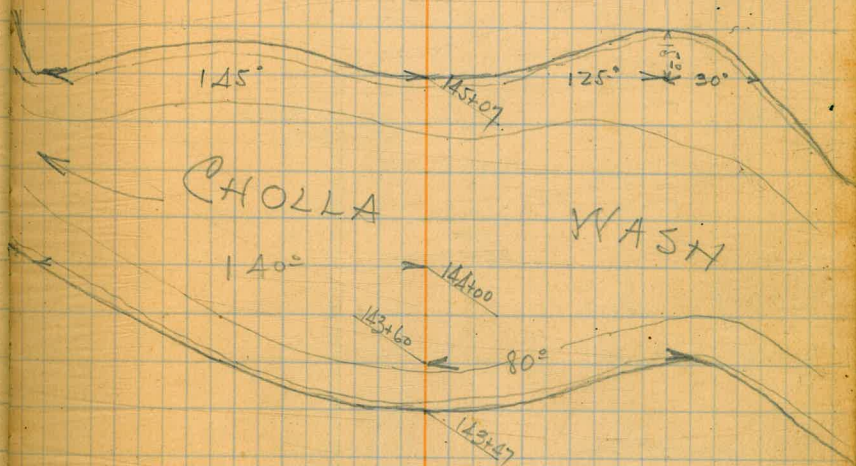 145°
145+07
125°
30°
CHOLLA
WASH
140°
144+00
143+60
80°
143+47